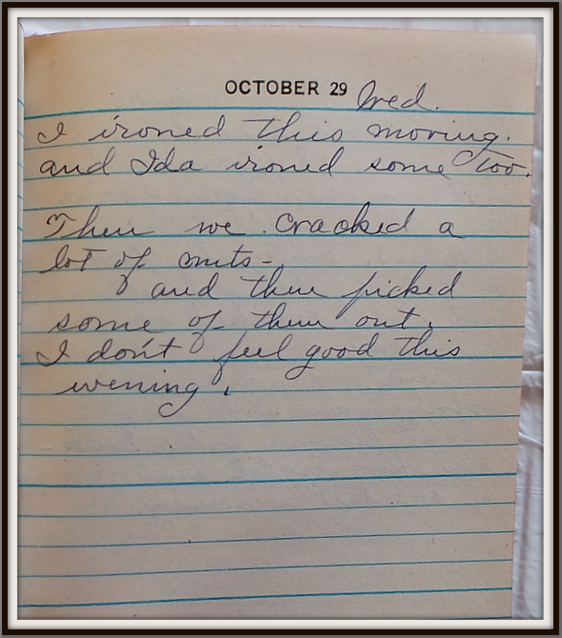 OCTOBER 29 Wed.
I ironed this moving.
and Ida ironed some too.
Then we cracked a
lot of nuts-
and then picked
some of them out.
I don't feel good this
evening.